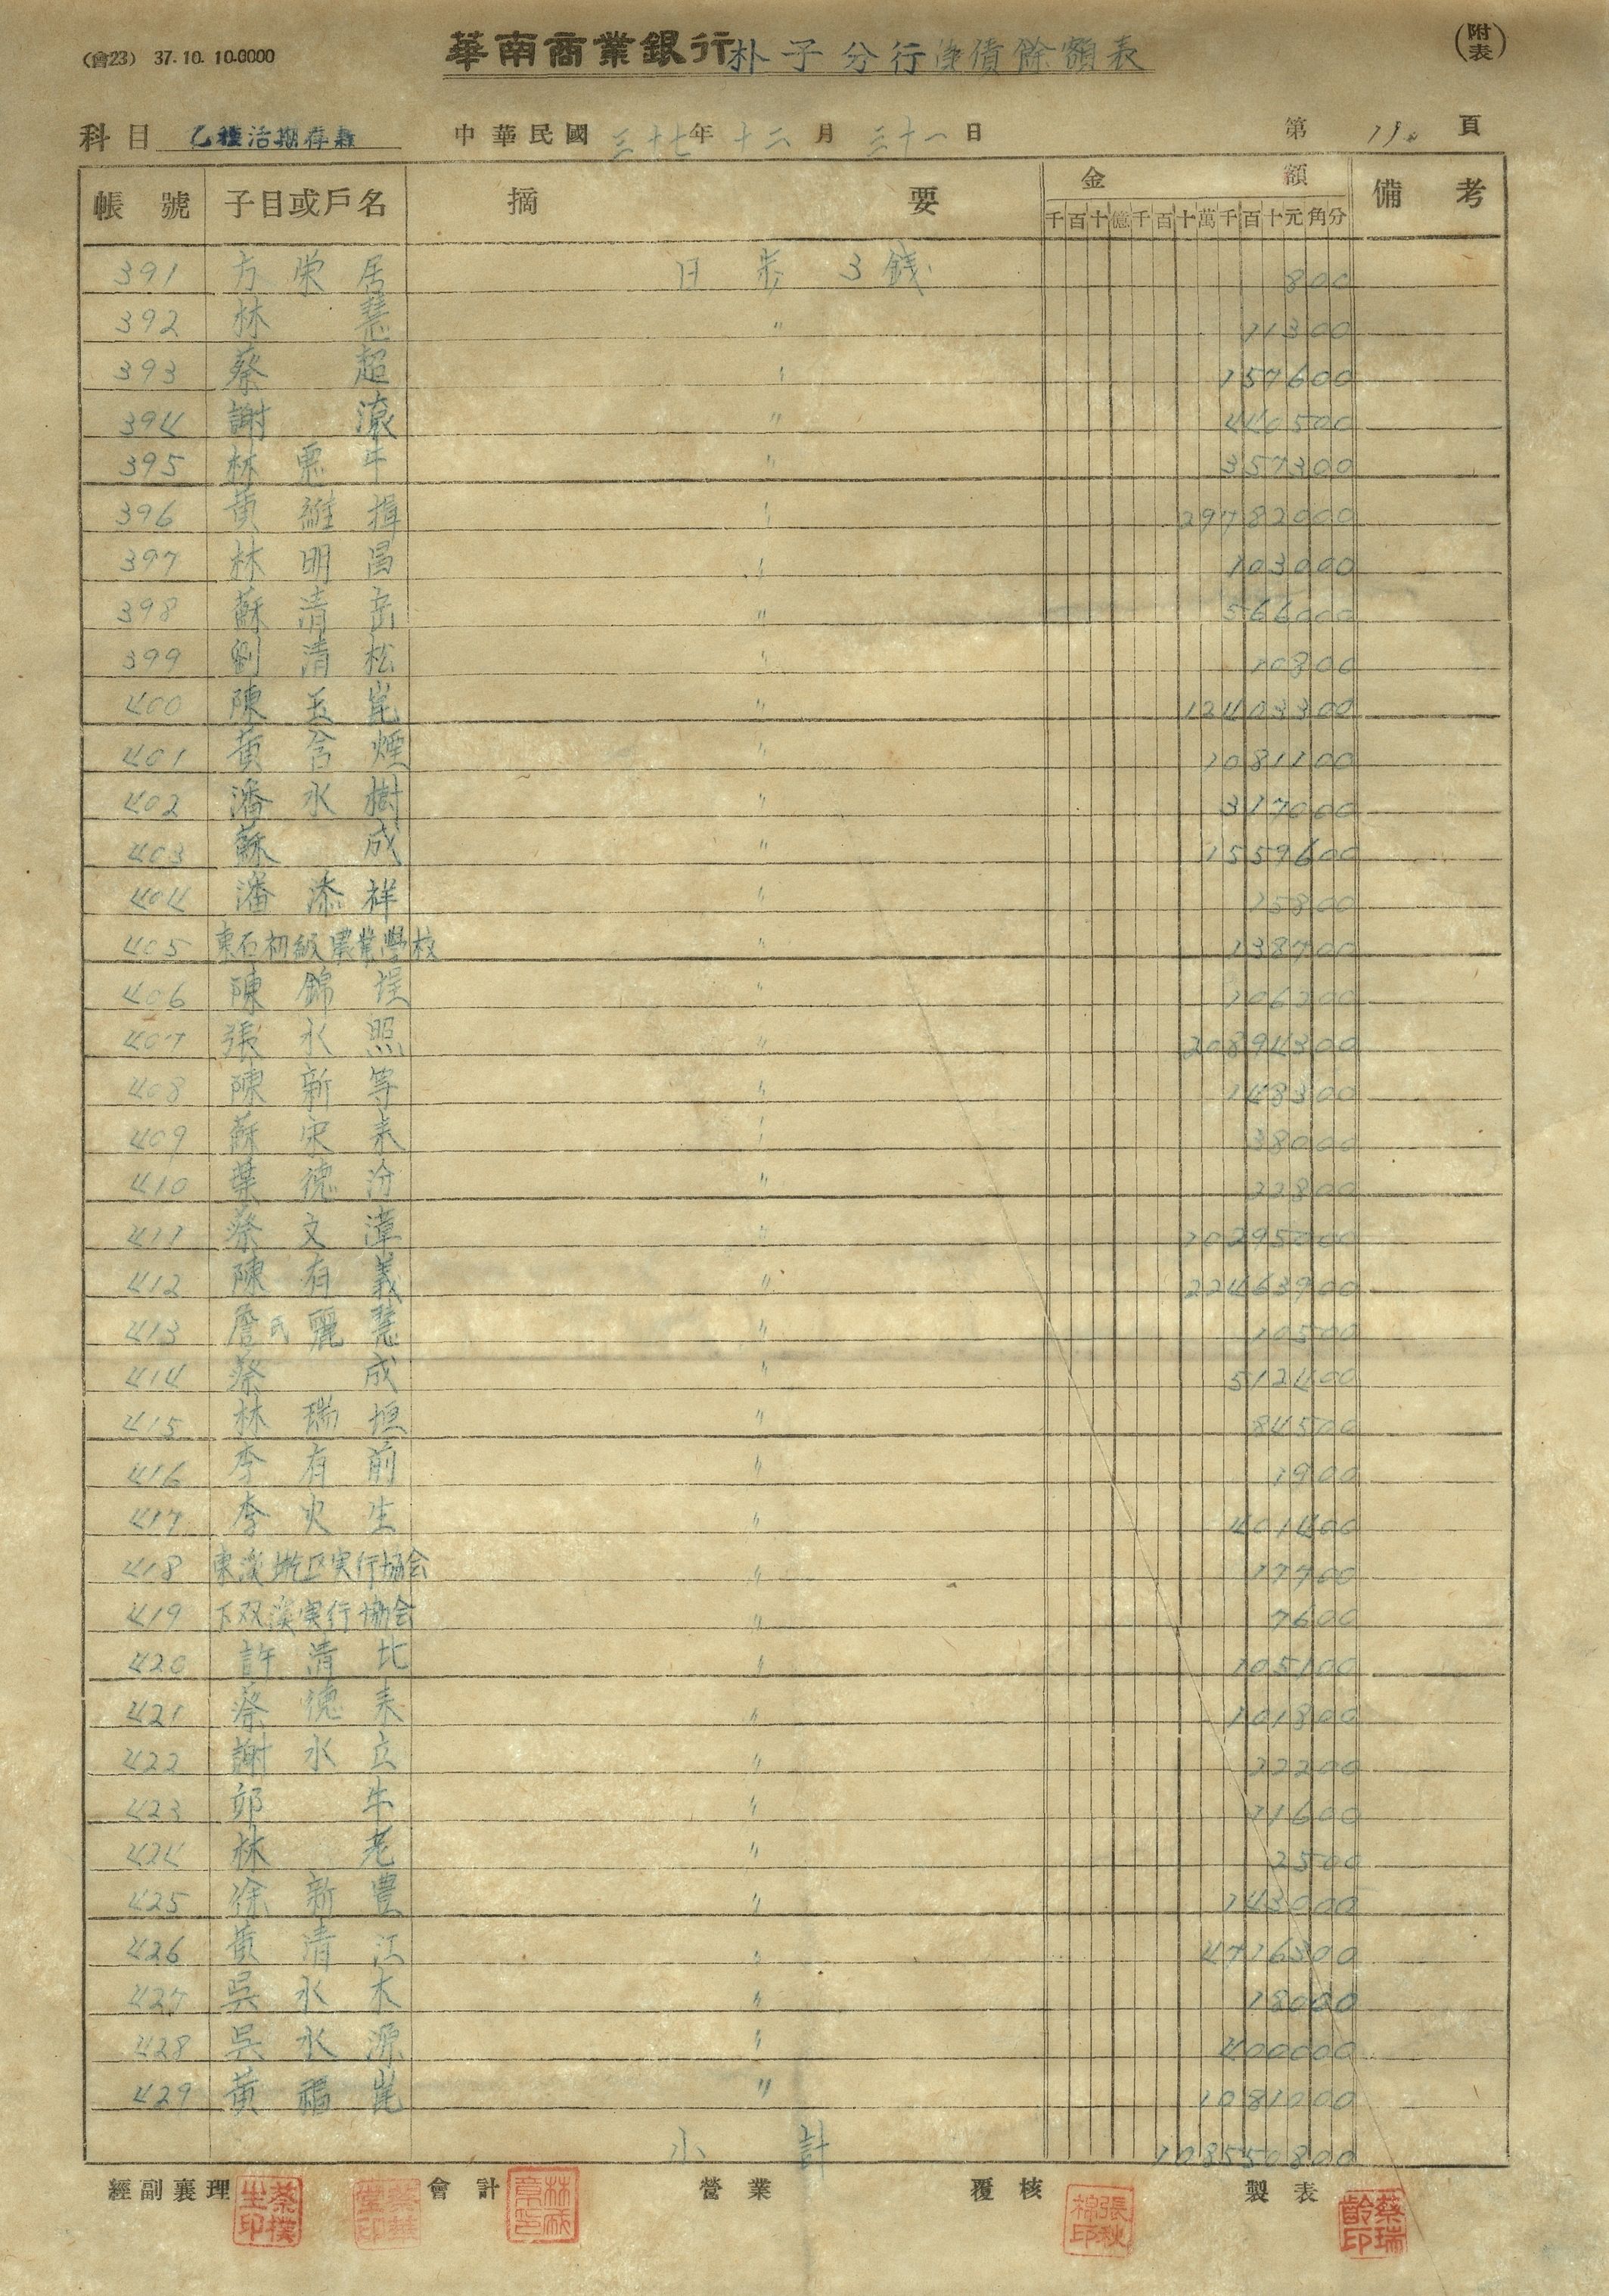 (會23) 37.10.10.0000
華南商業銀行朴子分行負債餘額表
(附表)
科目 乙種活期存款 中華民國 三十七年 十二月 三十一日 第 頁
帳號 子目或戶名 摘要 金額 備考
千百十億千百十萬千百十元角分
391 方栄居 日歩 3銭 800
392 林慧 〃 11300
393 蔡超 〃 157600
394 謝濠 〃 440500
395 林 牛 〃 357300
396 黄維揖 〃 29782000
397 林明昌 〃 103000
398 蘇清岳 〃 566000
399 劉清松 〃 10800
400 陳玉崑 〃 12403300
401 黄含煙 〃 1081100
402 潘永樹 〃 317000
403 蘇成 〃 1559600
404 潘添祥 〃 15800
405 東石初級農業學校 〃 138700
406 陳錦 〃 106200
407 張永照 〃 20894300
408 陳新等 〃 148300
409 蘇宋来 〃 38000
410 葉德汾 〃 22800
411 蔡文漳 〃 20295000
412 陳有義 〃 22463900
413 詹氏麗慧 〃 10500
414 蔡成 〃 512400
415 林瑞垣 〃 84500
416 李有前 〃 1900
417 李火生 〃 401400
418 東 区実行協会 〃 17700
419 下双溪実行協会 〃 7600
420 許清比 〃 105100
421 蔡德来 〃 101800
422 謝水立 〃 22200
423 郭牛 〃 21600
424 林老 〃 2500
425 徐新豊 〃 143000
426 黄清江 〃 4716300
427 吳永木 〃 18000
428 吳永源 〃 400000
429 黄福崑 〃 1081000
小計 108550800
經副襄理 會計 營業 覆核 製表
蔡樸生印
張秋棉印
蔡瑞齡印